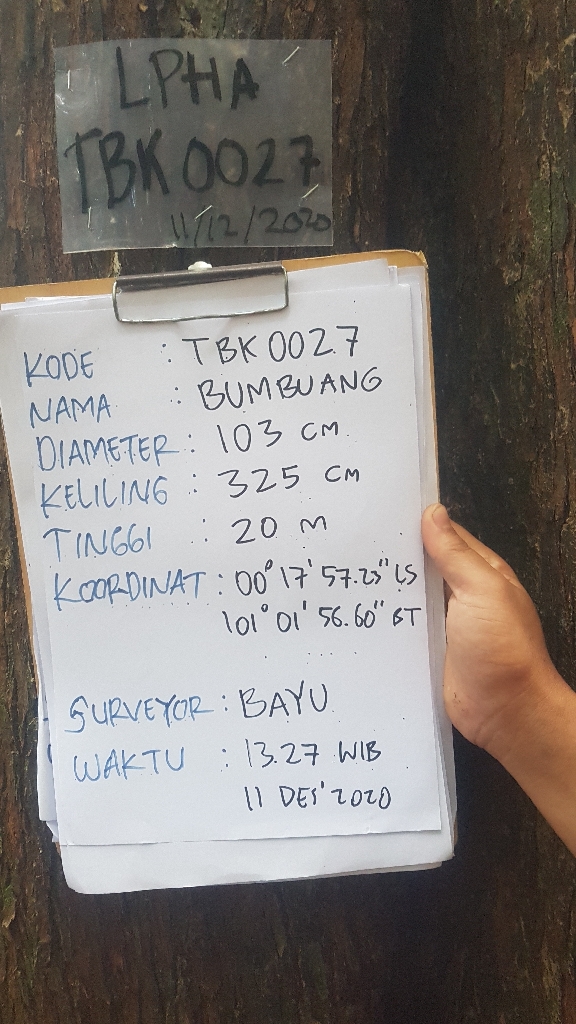 LPHA
TBK0027
11/12/2020
KODE : TBK0027
NAMA : BUMBUANG
DIAMETER : 103 CM
KELILING : 325 CM
TINGGI : 20 M
KOORDINAT : 00° 17' 57.23" LS
101° 01' 56.60" BT
SURVEYOR : BAYU
WAKTU : 13.27 WIB
11 DES' 2020